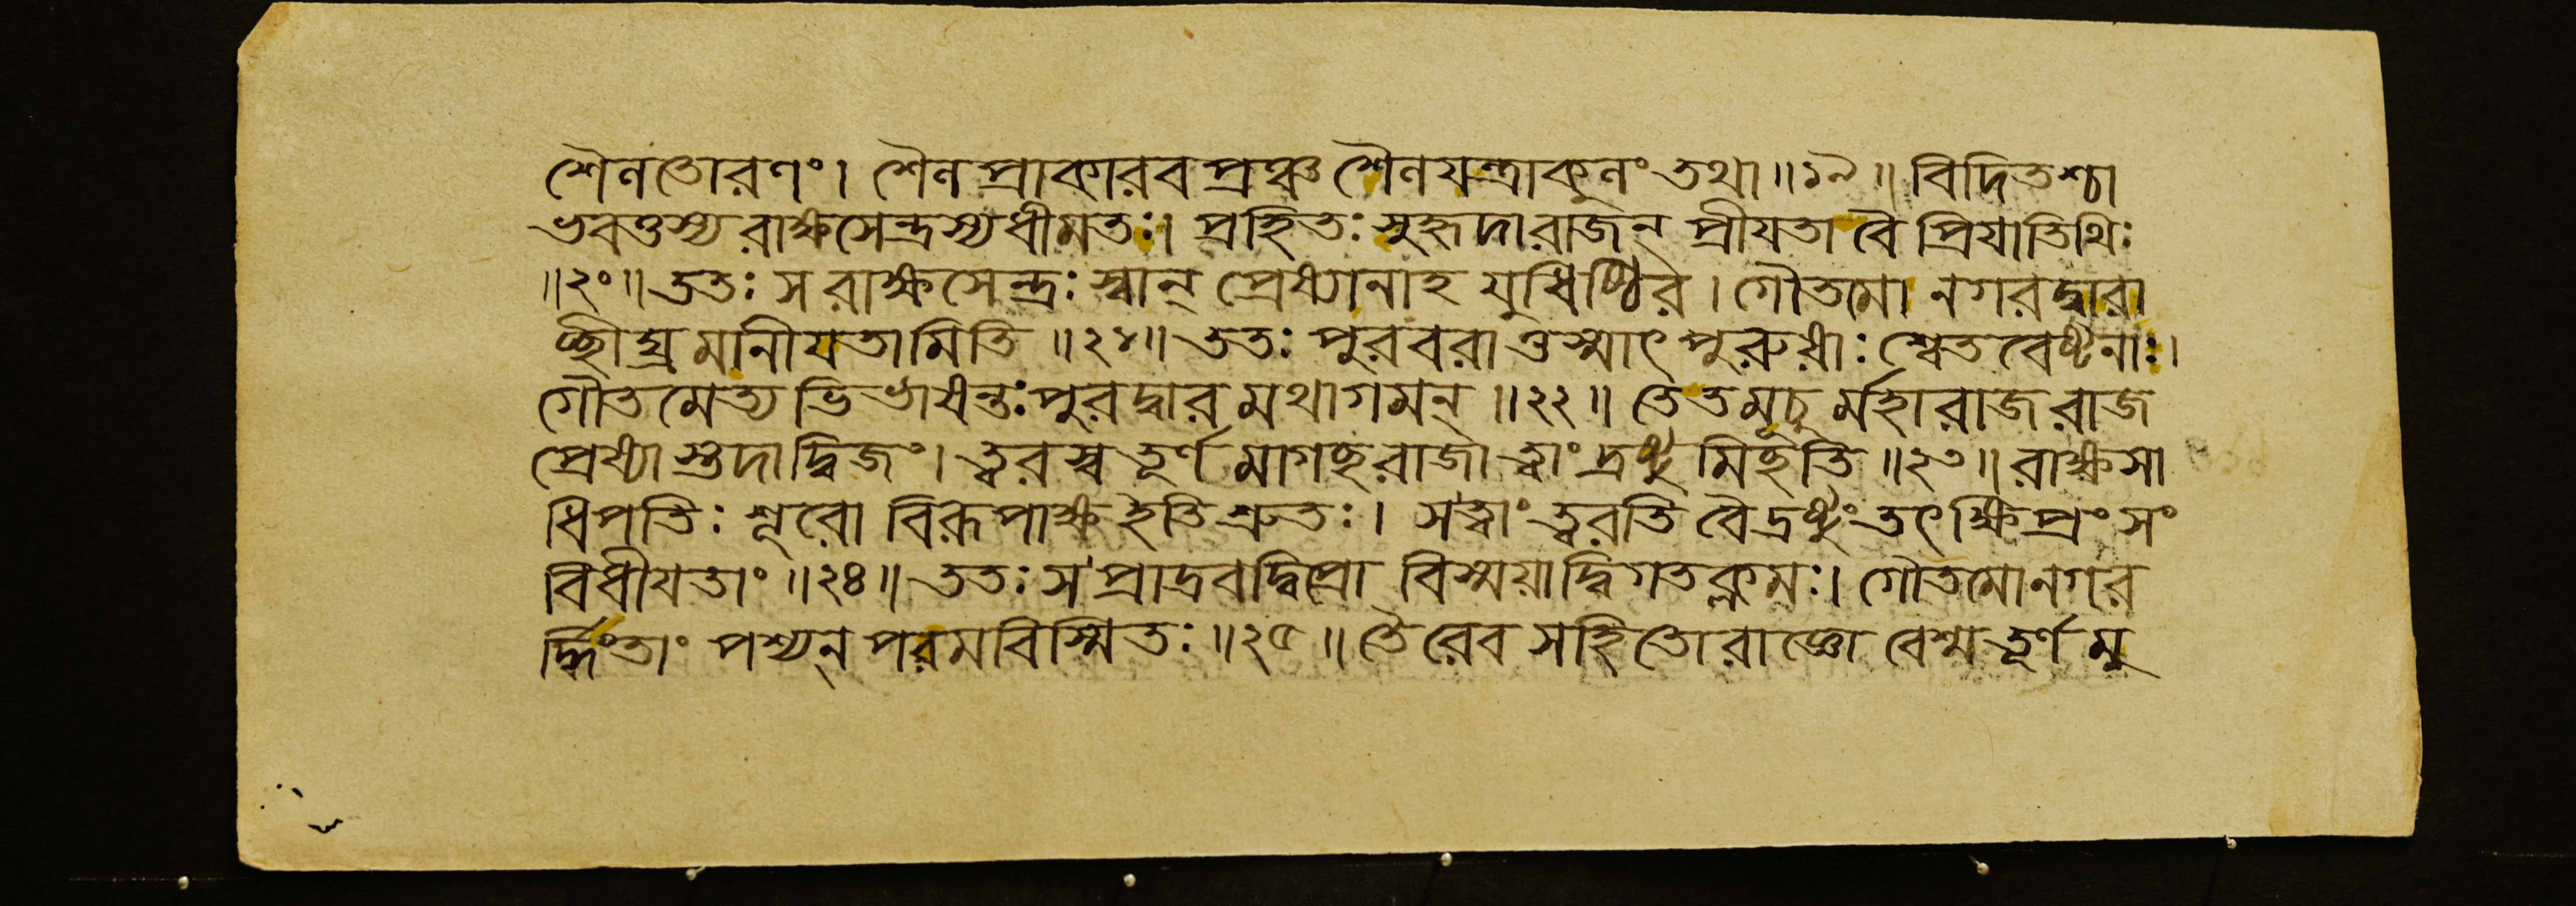 শৈলতোরণং। শৈলপ্রাকারবপ্রঞ্চ শৈলযন্ত্রাকুলং তথা॥১৯॥ বিদিতশ্চা
ভবত্তস্য রাক্ষসেন্দ্রস্য ধীমতঃ। প্রহিতঃ সুহৃদা রাজন্ প্রীযতা বৈ প্রিযাতিথিঃ
॥২০॥ ততঃ স রাক্ষসেন্দ্রঃ স্বান্ প্রেষ্যানাহ যুধিষ্ঠির। গৌতমো নগরদ্বারা
চ্ছীঘ্রমানীযতামিতি॥২১॥ ততঃ পুরবরাত্তস্মাৎ পুরুষাঃ শ্বেতবেষ্টনাঃ।
গৌতমেত্যভিভাষন্তঃ পুরদ্বারমথাগমন্॥২২॥ তে তমূচুর্মহারাজ রাজ
প্রেষ্যাস্তদা দ্বিজং। ত্বরস্ব তূর্ণমাগচ্ছ রাজা ত্বাং দ্রষ্টুমিচ্ছতি॥২৩॥ রাক্ষসা
ধিপতিঃ শূরো বিরূপাক্ষ ইতি শ্রুতঃ। স ত্বাং ত্বরতি বৈ দ্রষ্টুং তৎ ক্ষিপ্রং সং
বিধীযতাং॥২৪॥ ততঃ স প্রাদ্রবদ্বিপ্রো বিস্ময়াদ্বিগতক্লমঃ। গৌতমো নগর
র্দ্ধিং তাং পশ্যন্ পরমবিস্মিতঃ॥২৫॥ তৈরেব সহিতো রাজ্ঞো বেশ্ম তূর্ণমু